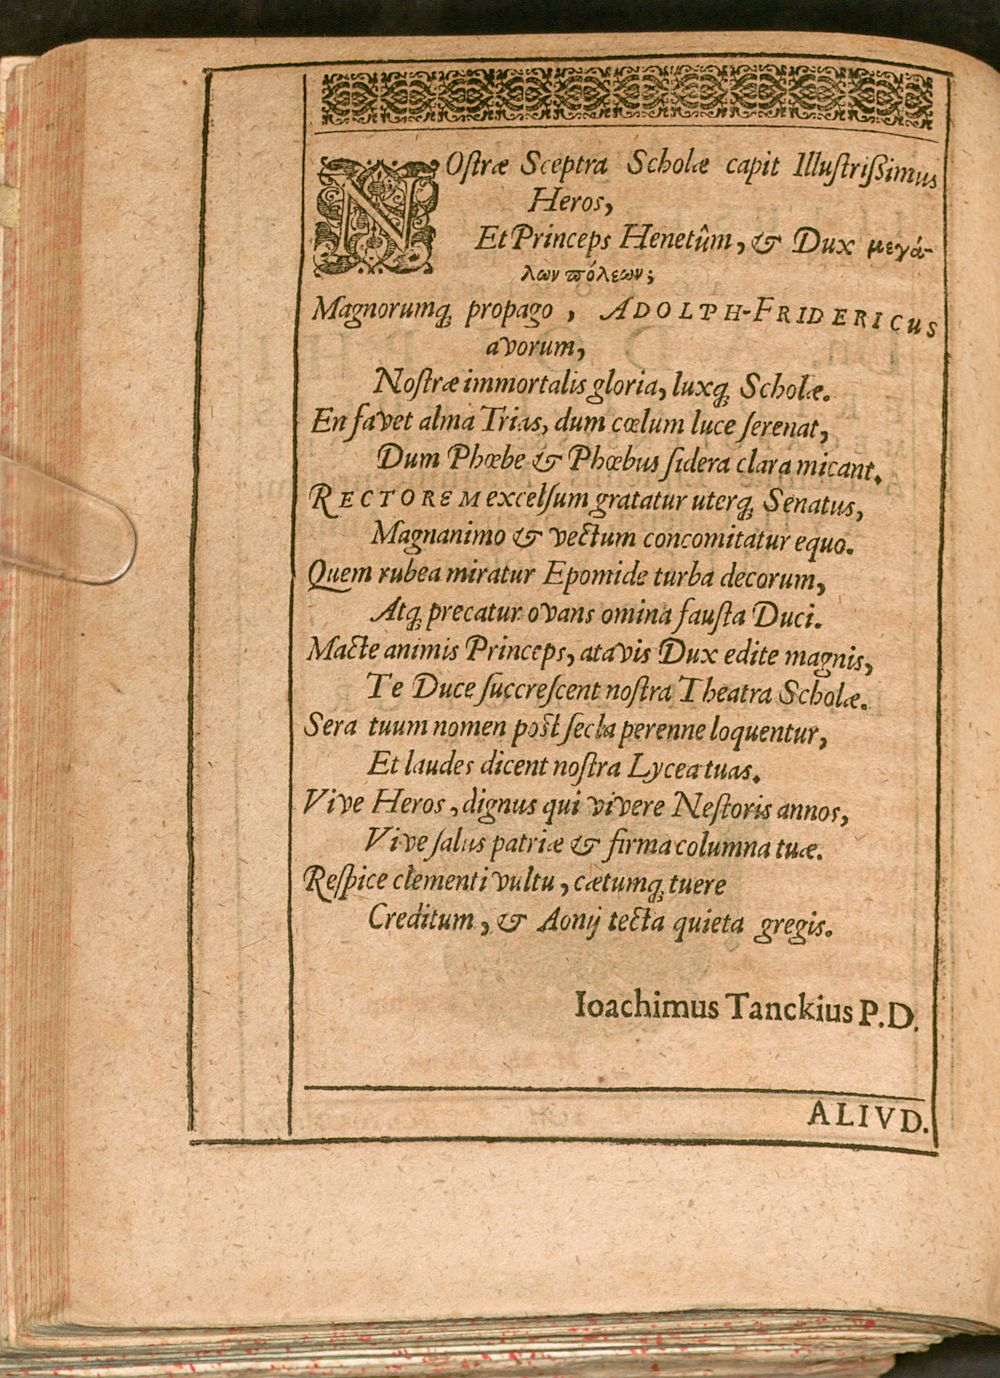 NOſtræ Sceptra Scholæ capit Illuſtriſsimus
Heros,
Et Princeps Henetûm, & Dux μεγά-
λων πόλεων;
Magnorumq́ propago, ADOLPH-FRIDERICUS
avorum,
Noſtræ immortalis gloria, luxq́ Scholæ.
En favet alma Trias, dum cœlum luce ſerenat,
Dum Phœbe & Phœbus ſidera clara micant.
RECTOREM excelſum gratatur uterq́ Senatus,
Magnanimo & vectum concomitatur equo.
Quem rubea miratur Epomide turba decorum,
Atq́ precatur ovans omina fauſta Duci.
Macte animis Princeps, atavis Dux edite magnis,
Te Duce ſuccreſcent noſtra Theatra Scholæ.
Sera tuum nomen poſt ſecla perenne loquentur,
Et laudes dicent noſtra Lycea tuas.
Vive Heros, dignus qui vivere Neſtoris annos,
Vive ſalus patriæ & firma columna tuæ.
Reſpice clementi vultu, cætumq́ tuere
Creditum, & Aonij tecta quieta gregis.
Ioachimus Tanckius P.D.
ALIVD.